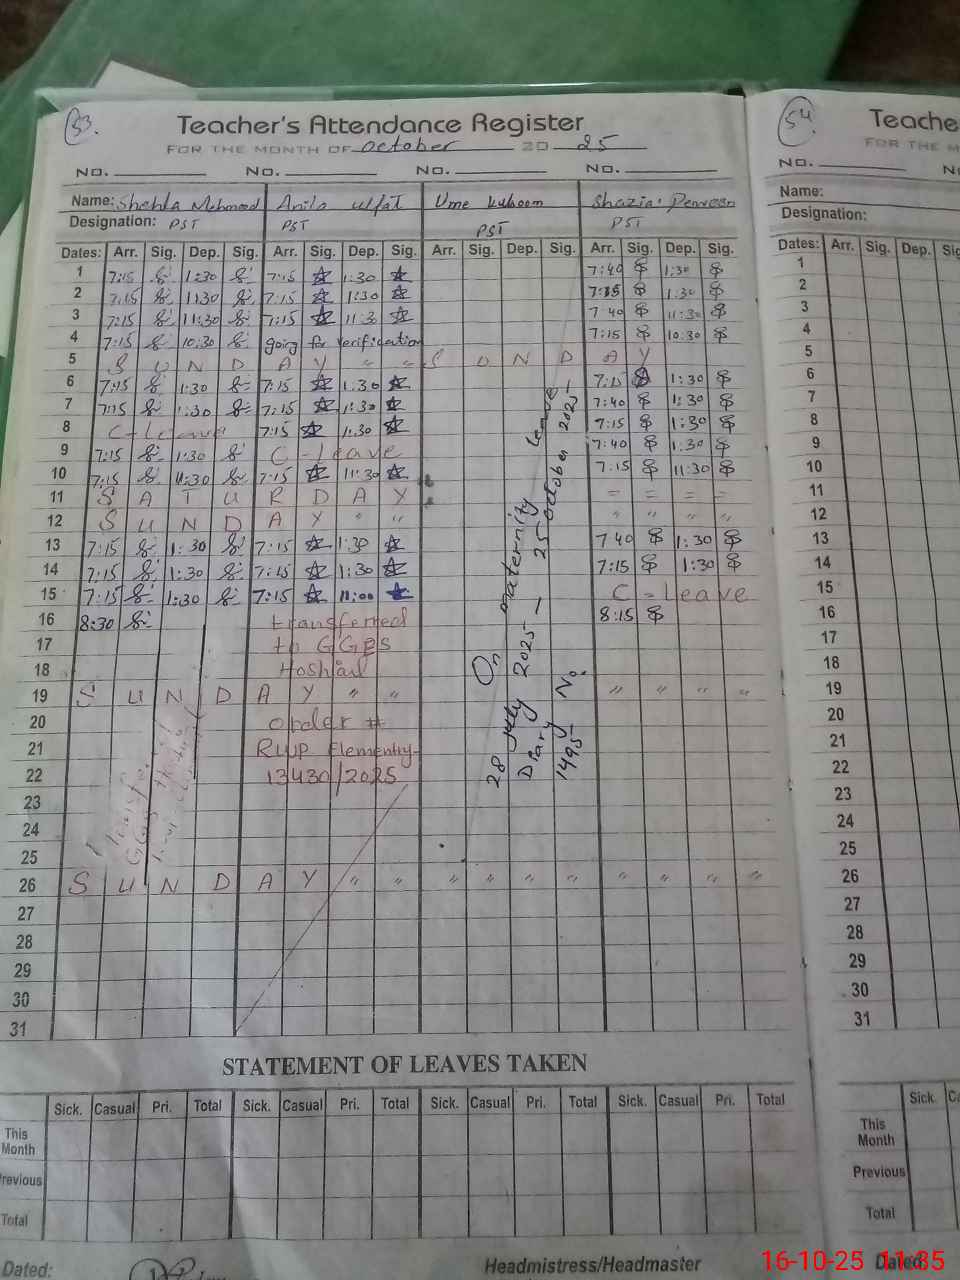 53.
Teacher's Attendance Register
FOR THE MONTH OF October 20 25
NO. NO. NO. NO.
Name: Shehla Mehmood Anila Ulfat Ume kulsoom Shazia Perveen
Designation: PST PST PST PST
Dates: Arr. Sig. Dep. Sig. Arr. Sig. Dep. Sig. Arr. Sig. Dep. Sig. Arr. Sig. Dep. Sig.
1 7:15 1:30 7:15 1:30 7:40 1:30
2 7:15 1130 7:15 1:30 7:15 1:30
3 7:15 11:30 7:15 11:30 7:40 11:30
4 7:15 10:30 going for verification 7:15 10:30
5 S U N D A Y " " S U N D A Y
6 7:15 1:30 7:15 1:30 7:15 1:30
7 7:15 1:30 7:15 1:30 7:40 1:30
8 C-leave 7:15 1:30 7:15 1:30
9 7:15 1:30 C-leave 7:40 1:30
10 7:15 11:30 7:15 11:30 7:15 11:30
11 S A T U R D A Y = = = =
12 S U N D A Y " " " " " "
13 7:15 1:30 7:15 1:30 7 40 1:30
14 7:15 1:30 7:15 1:30 7:15 1:30
15 7:15 1:30 7:15 11:00 C-Leave
16 8:30 transferred 8:15
17 to GGPS
18 Hoshial
19 S U N D A Y " " " " " "
20 order #
21 RWP Elementry-
22 13430/2025
23
24
25
26 S U N D A Y " " " " " " " " " "
27
28
29
30
31
On maternity leave
28 July 2025 - 25 October 2025 -
Diary No.
1495
STATEMENT OF LEAVES TAKEN
Sick. Casual Pri. Total Sick. Casual Pri. Total Sick. Casual Pri. Total Sick. Casual Pri. Total
This Month
Previous
Total
Dated: Headmistress/Headmaster
54.
Teache
FOR THE M
NO.
Name:
Designation:
Dates: Arr. Sig. Dep. Sig
1
2
3
4
5
6
7
8
9
10
11
12
13
14
15
16
17
18
19
20
21
22
23
24
25
26
27
28
29
30
31
Sick. Ca
This Month
Previous
Total
Dated:
16-10-25 11:35